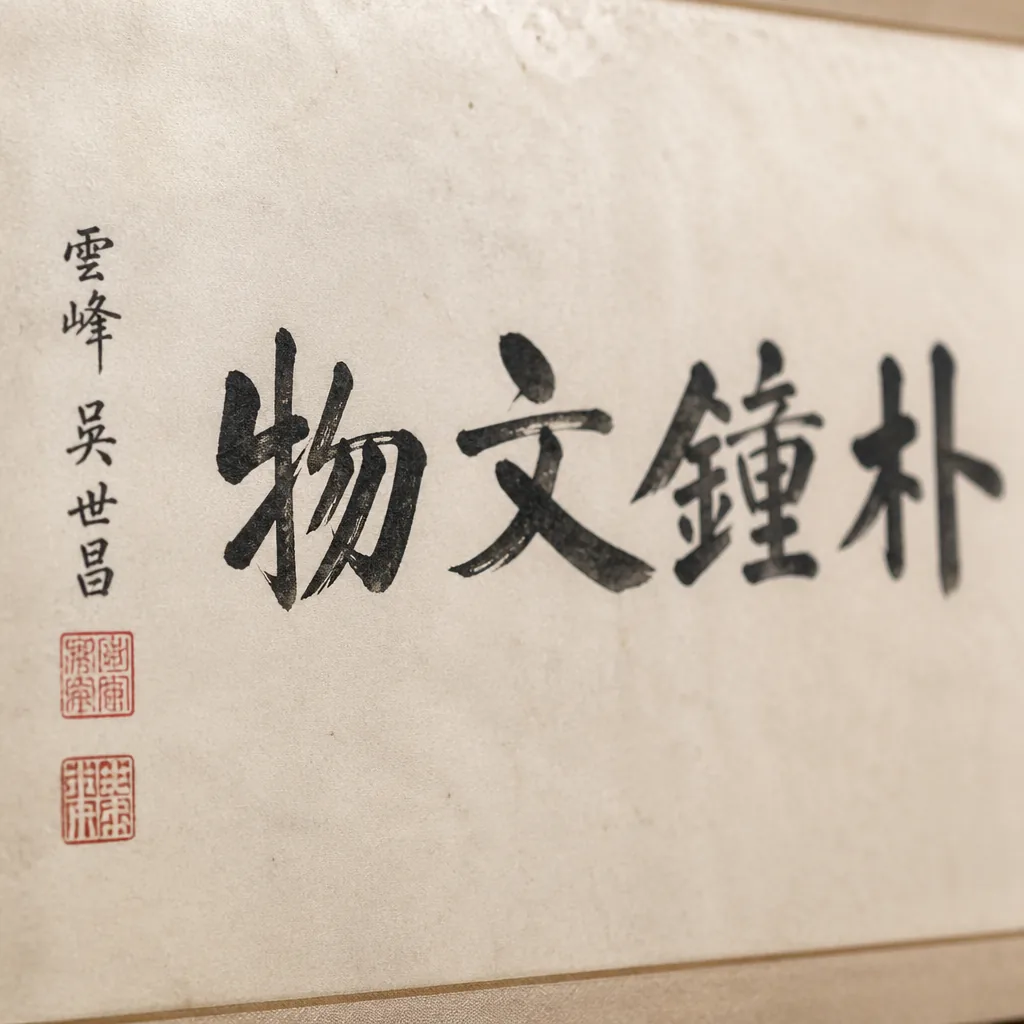 朴鐘文物
雲峰 吳世昌